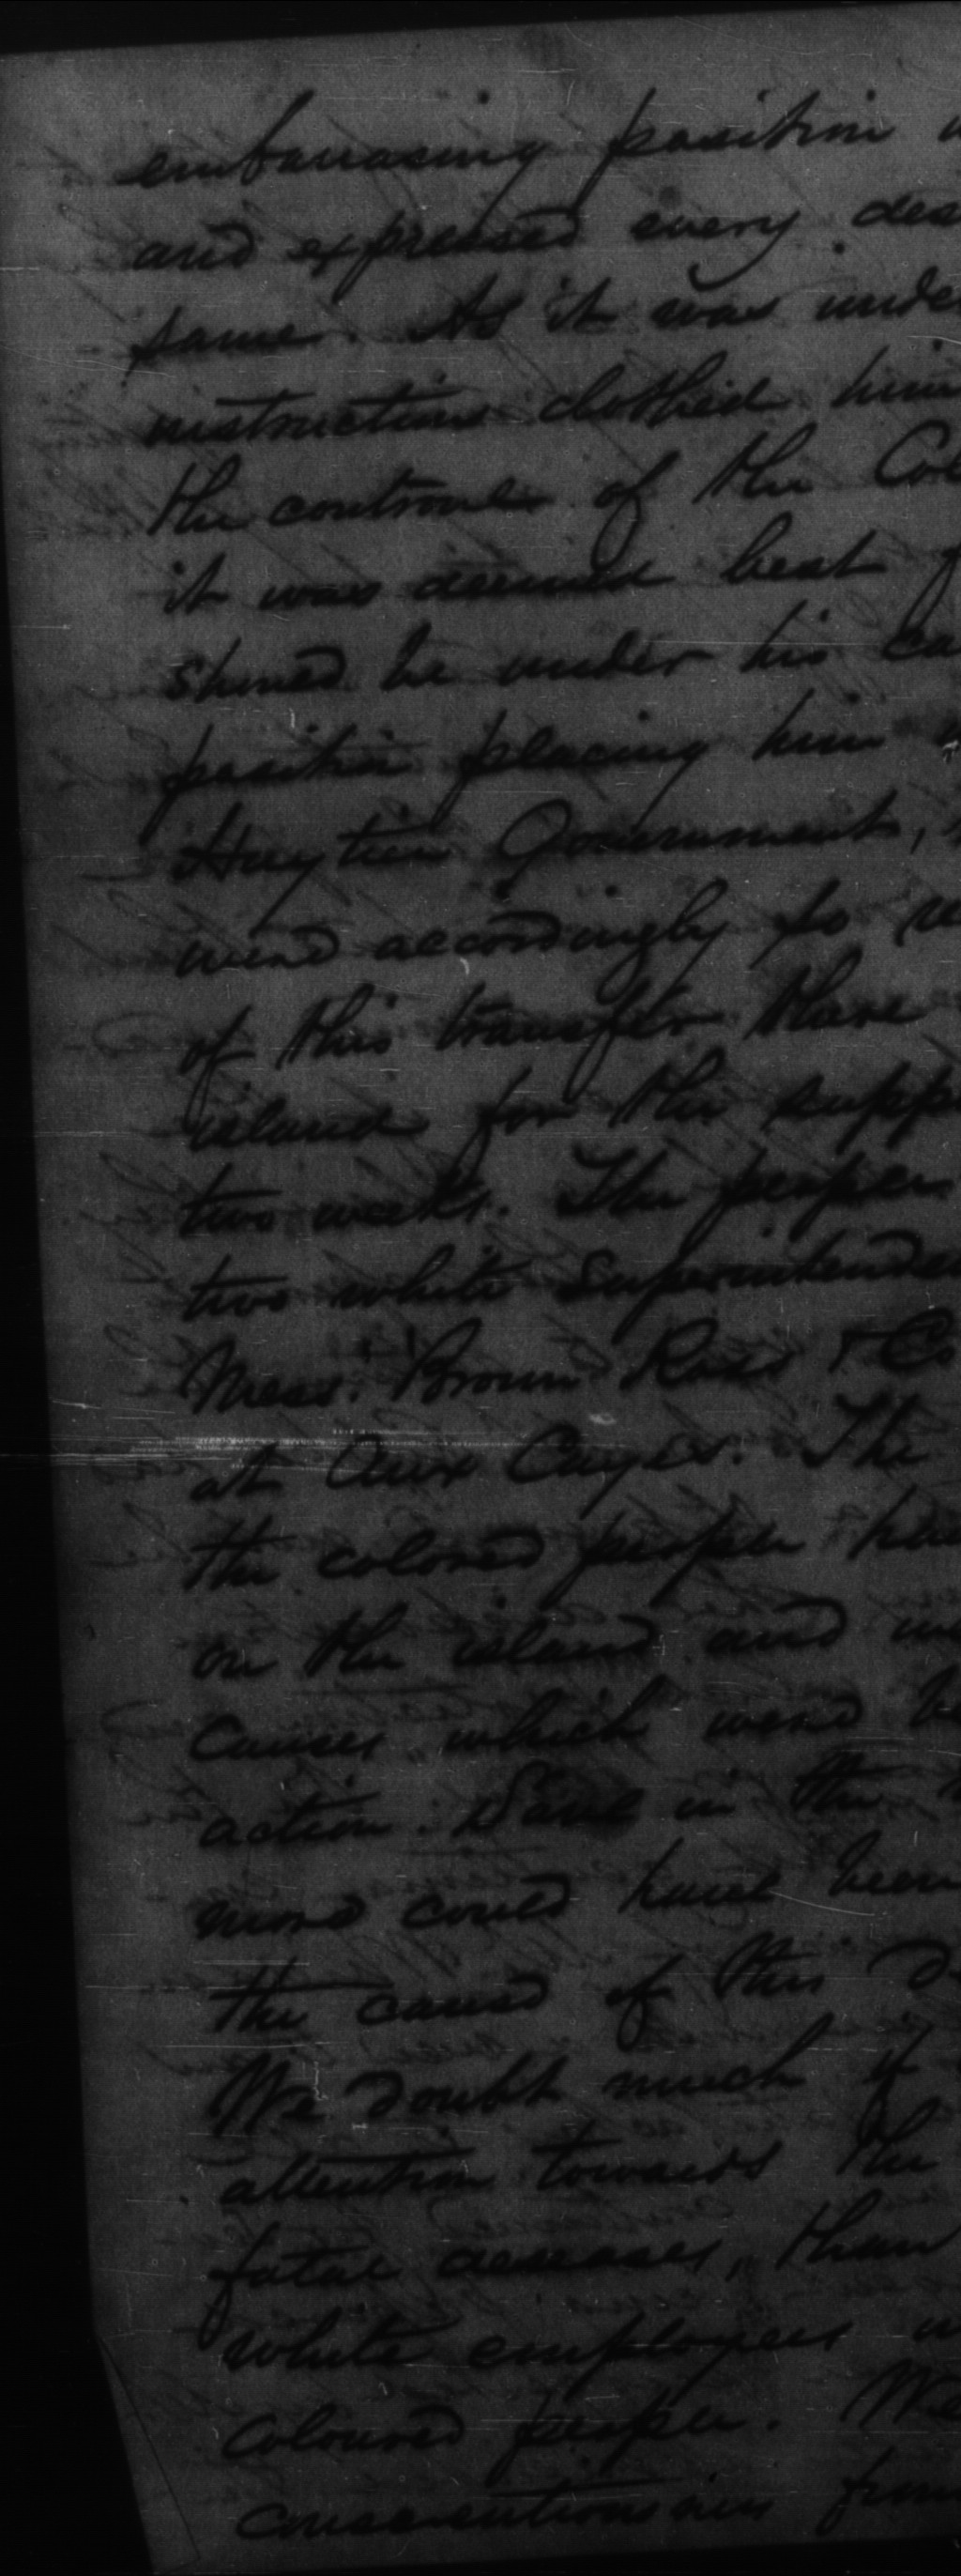 embarrassing position
and expressed every des
same. As it was unde
instructions clothed him
the controul of the Col
it was deemed best f
should be under his ca
position placing him
Haytien Government,
were accordingly so
of this transfer there
island for the suppo
two weeks. The people
two white Superintenden
Mess. Brown Ross & Co
at Aux Cayes. The
the colored people ha
on the island and
causes which were b
action. in the
more could have been
the cause of this d
We doubt much if
attention towards the
fatal diseases, than
white employees w
coloured people. We
conscientious